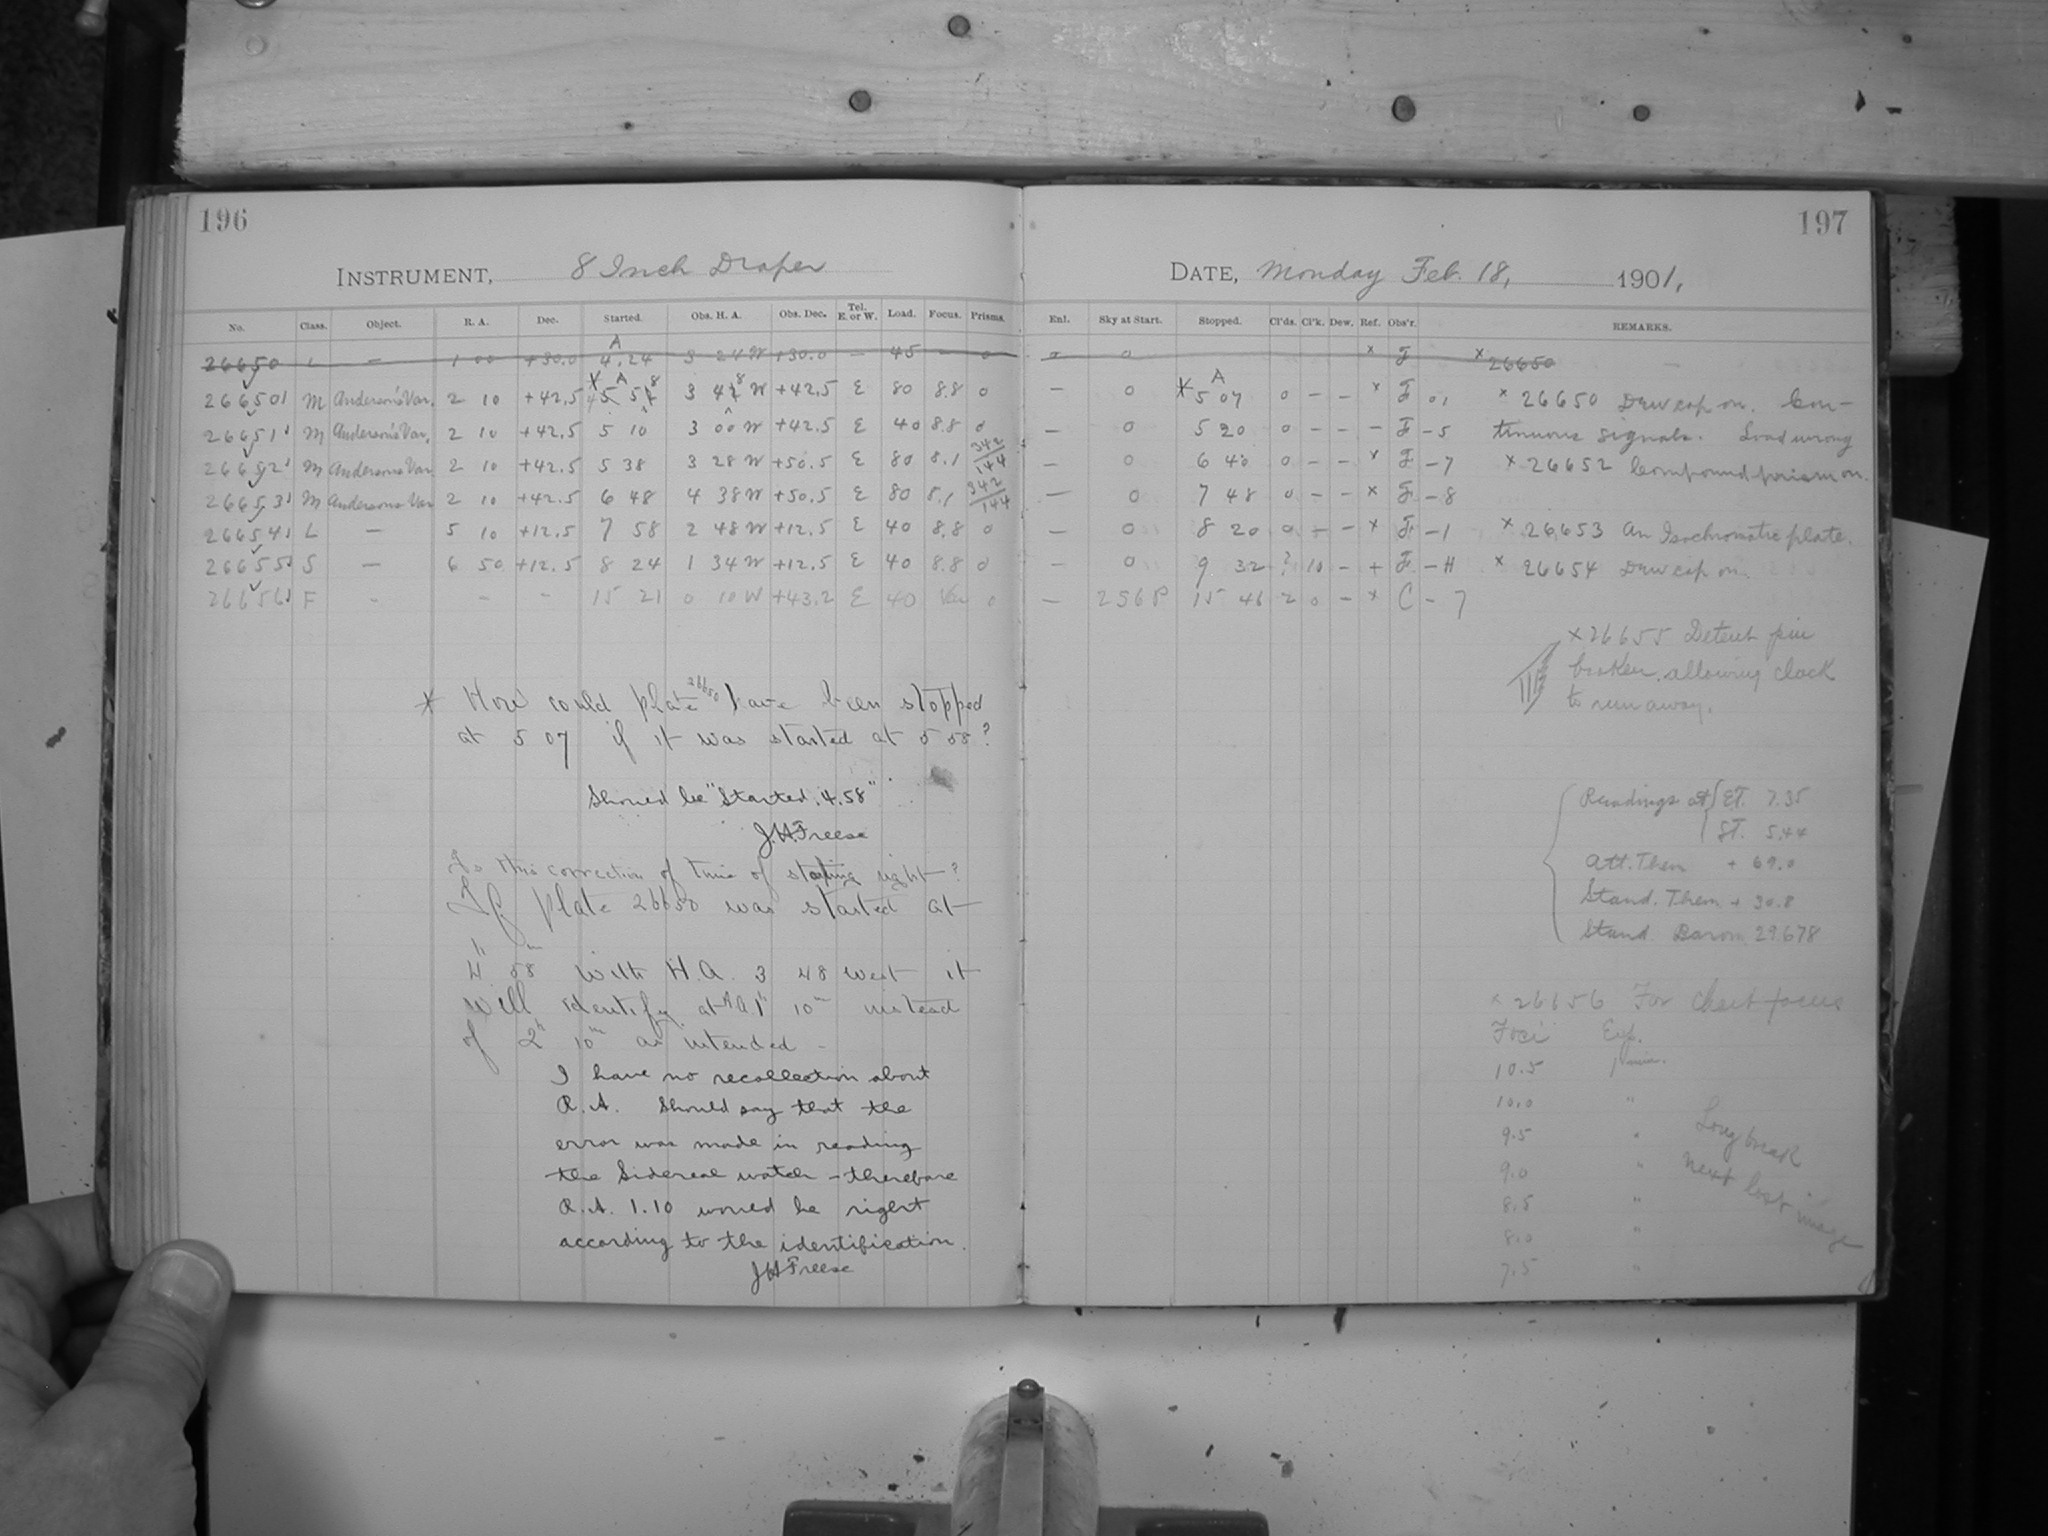 196
INSTRUMENT, 8 Inch Draper
No. Class. Object. R. A. Dec. Started. Obs. H. A. Obs. Dec. Tel. E. or W. Load. Focus. Prisms.
26650 L — 1 00 +30.0 A 4.24 3 24 W +30.0 — 45 — 0
26650 M Anderson's Var. 2 10 +42.5 * A 3 48 W +42.5 E 80 8.8 0
26651 M Anderson's Var. 2 10 +42.5 5 10 3 00 W +42.5 E 40 8.8 0
26652 M Andersons Var. 2 10 +42.5 5 38 3 28 W +50.5 E 80 8.1 342/144
26653 M Andersons Var 2 10 +42.5 6 48 4 38 W +50.5 E 80 8.1 342/144
26654 L — 5 10 +12.5 7 58 2 48 W +12.5 E 40 8.8 0
26655 S — 6 50 +12.5 8 24 1 34 W +12.5 E 40 8.8 0
26656 F - - - 15 21 0 10 W +43.2 E 40 Var 0
* How could plate 26650 have been stopped
at 5 07 if it was started at 5 58?
Should be "Started, 4.58"
J.H.Freese
Is this correction of time of starting right?
If plate 26650 was started at
4h 58m with H.A. 3 48 west it
will identify at RA 1h 10m instead
of 2h 10m as intended -
I have no recollection about
R.A. Should say that the
error was made in reading
the Sidereal watch - therefore
R.A. 1.10 would be right
according to the identification.
JHFreese
197
DATE, Monday Feb. 18, 1901,
Enl. Sky at Start. Stopped. Cl'ds. Cl'k. Dew. Ref. Obs'r. REMARKS.
0 x F x 26650
— 0 * A 5 07 0 - - x F 01 x 26650 Dew cap on. Con-
— 0 5 20 0 - - - F - 5 tinuous signals. Load wrong
— 0 6 40 0 - - x F - 7 x 26652 Compound prism on.
— 0 7 48 0 - - x F - 8
— 0 8 20 0 - - x F - 1 x 26653 An Isochromatic plate.
— 0 9 32 ? 10 - + F - H x 26654 Dew cap on.
— 256 P 15 46 2 0 - x C - 7
x 26655 Detent pin
broken, allowing clock
to run away.
Readings at ET. 7.35
ST. 5.44
Att. Them + 69.0
Stand. Them + 30.8
Stand. Barom 29.678
x 26656 For Chart focus
Foci Exp.
10.5 1 min.
10.0 "
9.5 "
9.0 "
8.5 "
8.0 "
7.5 "
Long break
next last image